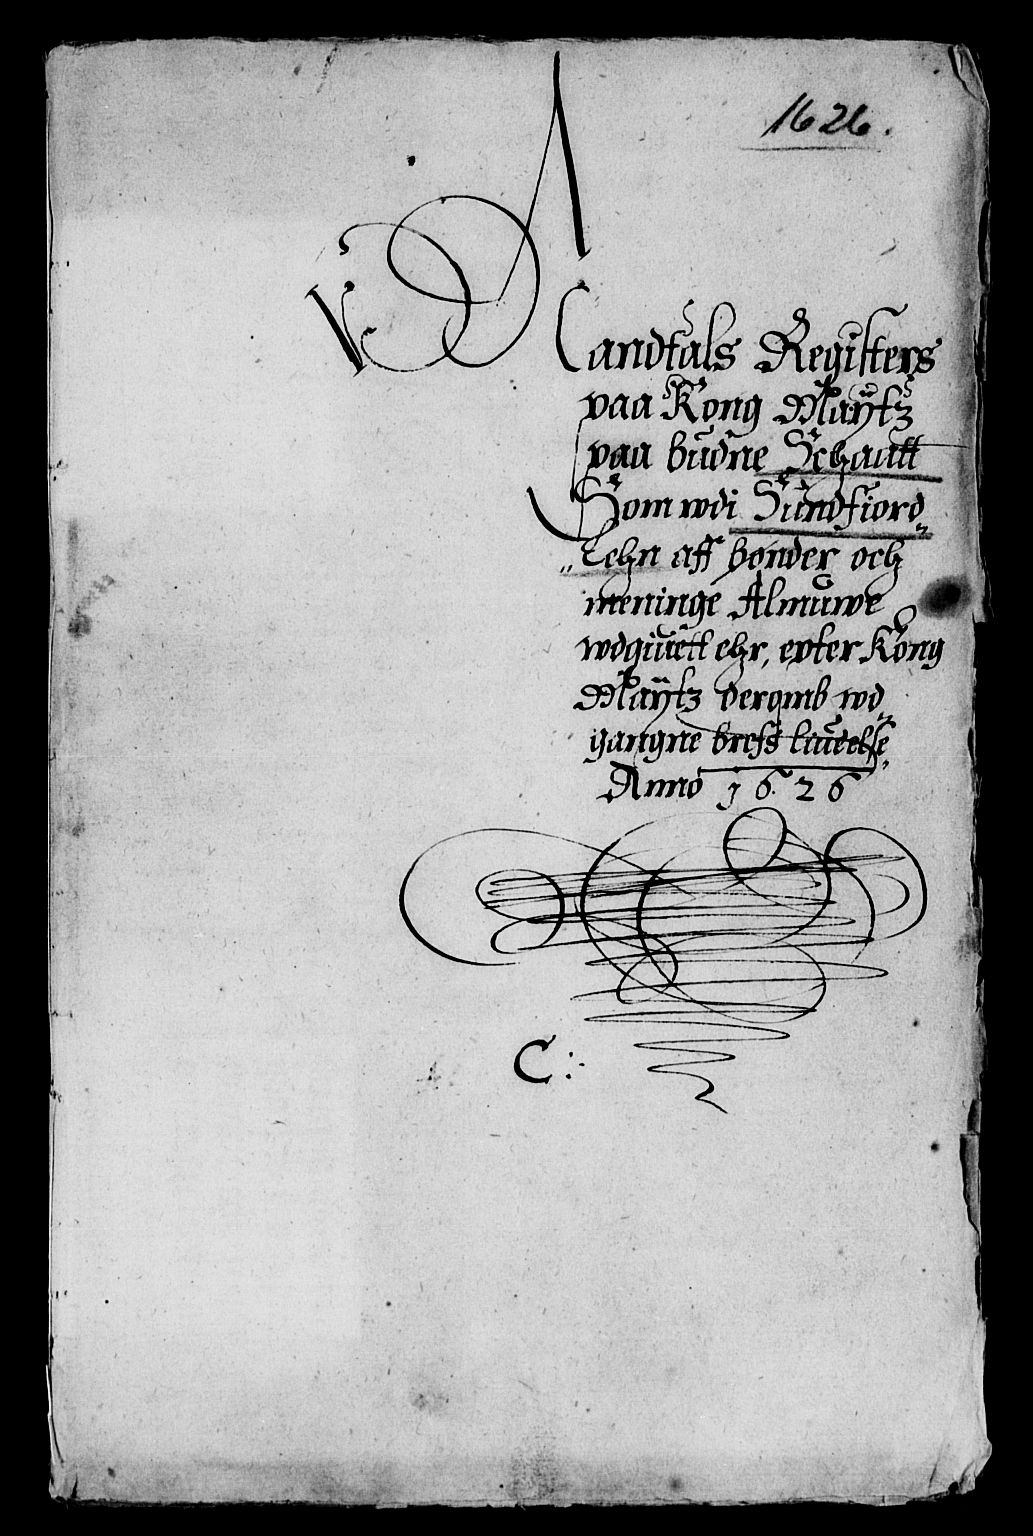 1626.
Mandtals Registers
paa Kong Maÿtz
paa budne Schaatt
Som wdi Sundfiord
Lehn aff bonder och
meninge Almuwe
wdgiuett ehr, epter Kong
Maÿtz deromb wd
gangne breffs liudelse
Anno 1626
C: